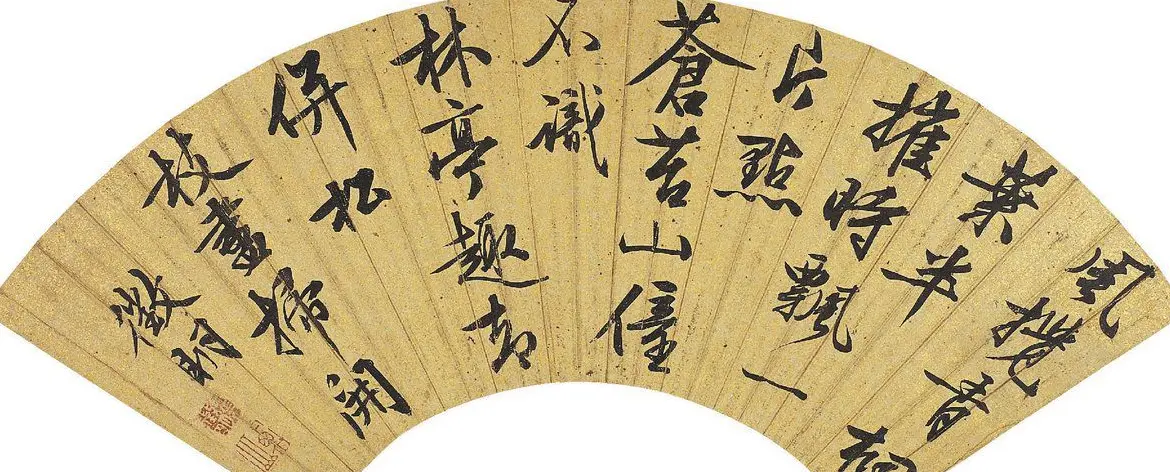 風攪青桐
葉半
摧時飄一
片點
蒼苔山僮
不識
林亭趣却
併松
枝盡掃開
徵明